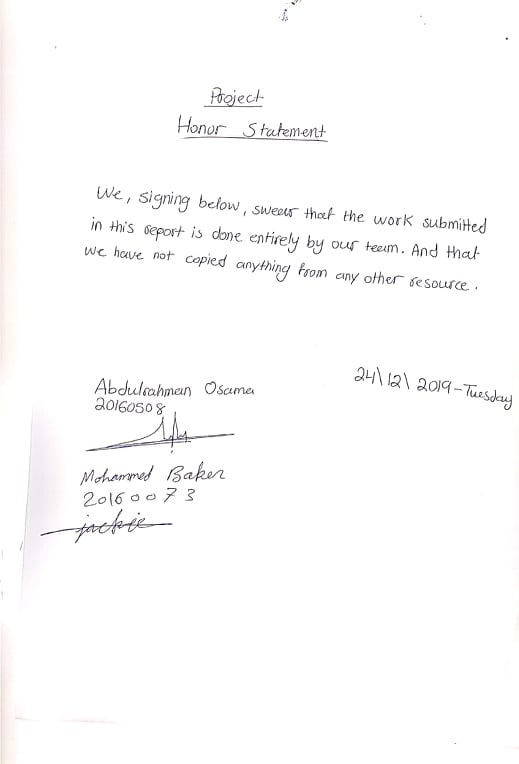 Project
Honor Statement
We, signing below, swear that the work submitted
in this report is done entirely by our team. And that
we have not copied anything from any other resource.
24\12\2019-Tuesday
Abdulrahman Osama
20160508
Mohammed Baker
20160073
jackie